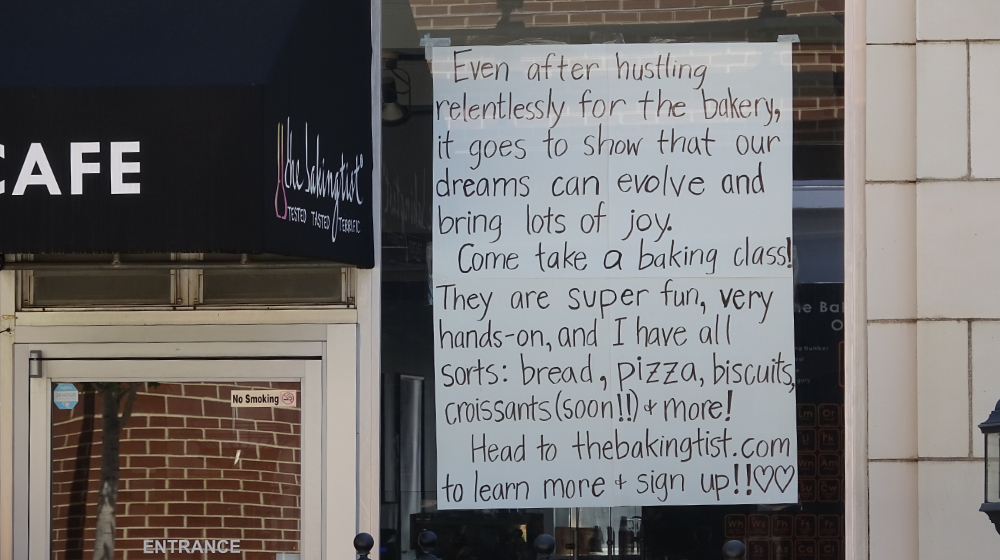 CAFE
the bakingtist
TESTED TASTED TERRIFIC
No Smoking
ENTRANCE
Even after hustling
relentlessly for the bakery,
it goes to show that our
dreams can evolve and
bring lots of joy.
Come take a baking class!
They are super fun, very
hands-on, and I have all
sorts: bread, pizza, biscuits,
croissants (soon!!) + more!
Head to thebakingtist.com
to learn more + sign up!!♡♡